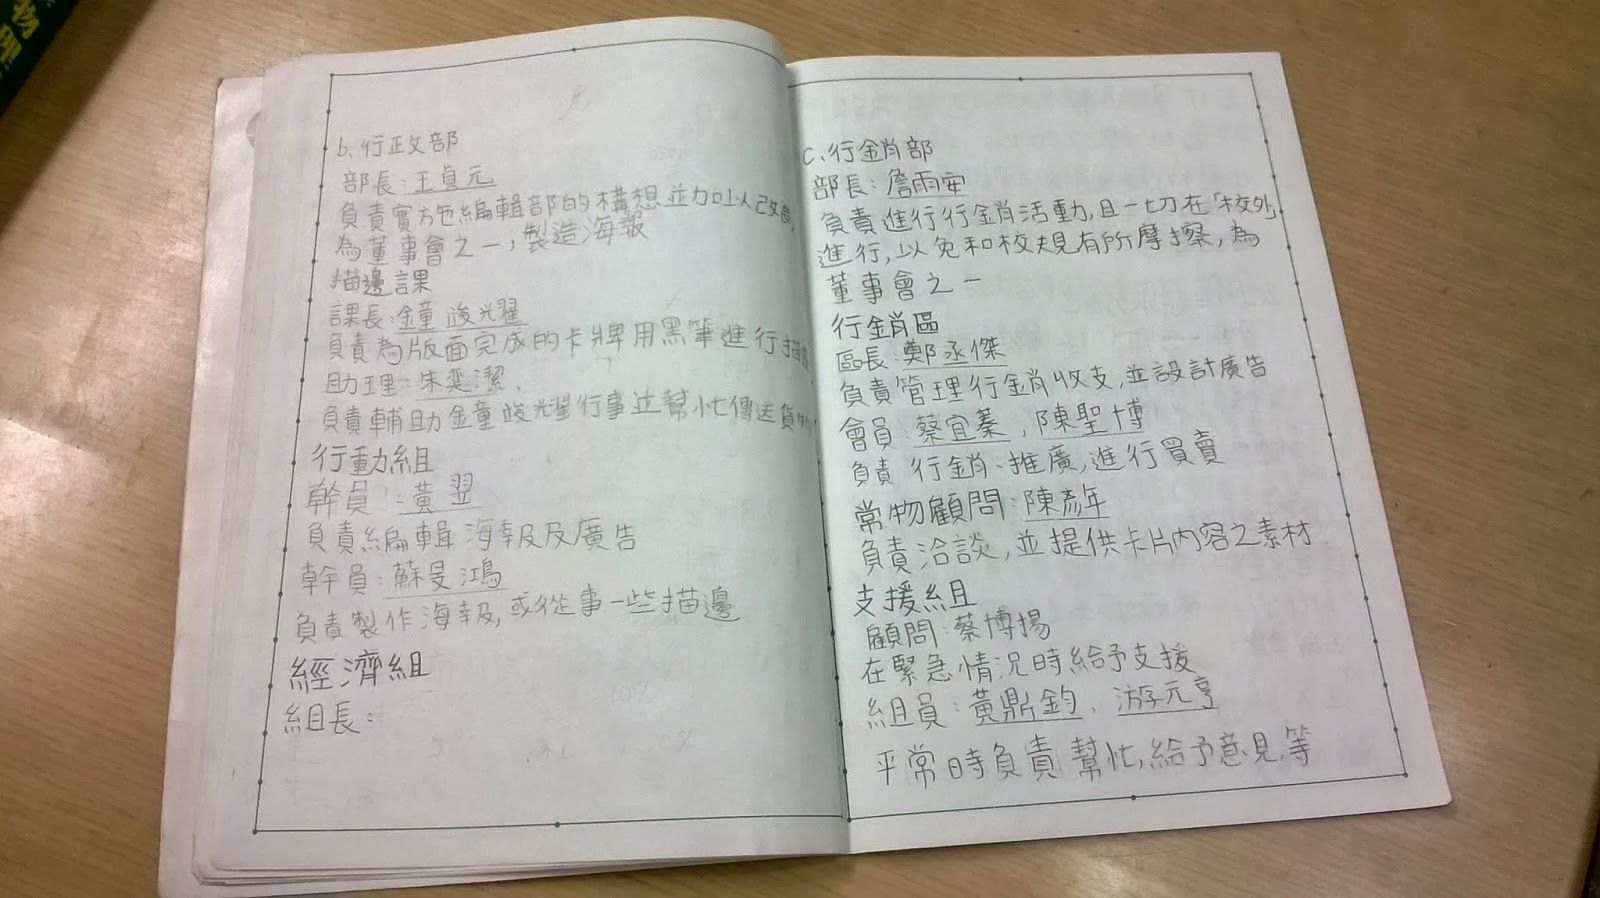 b、行政部
部長:王貞元
負責實施編輯部的構想並加以改良,
為董事會之一,製造海報
描邊課
課長:鐘浚光耀
負責為版面完成的卡牌用黑筆進行描
助理:朱奕潔、
負責輔助金童浚光耀行事並幫忙傳送貨物
行動組
幹員:黃翌
負責編輯海報及廣告
幹員:蘇旻鴻
負責製作海報,或從事一些描邊
經濟組
組長:
c、行銷部
部長:詹雨安
負責進行行銷活動,且一切在「校外」
進行,以免和校規有所摩擦,為
董事會之一
行銷區
區長:鄭丞傑
負責管理行銷收支,並設計廣告
會員:蔡宜蓁,陳聖博
負責行銷、推廣,進行買賣
常物顧問:陳彥年
負責洽談,並提供卡片內容之素材
支援組
顧問:蔡博揚
在緊急情況時給予支援
組員:黃鼎鈞、游元亨
平常時負責幫忙,給予意見,等
物理